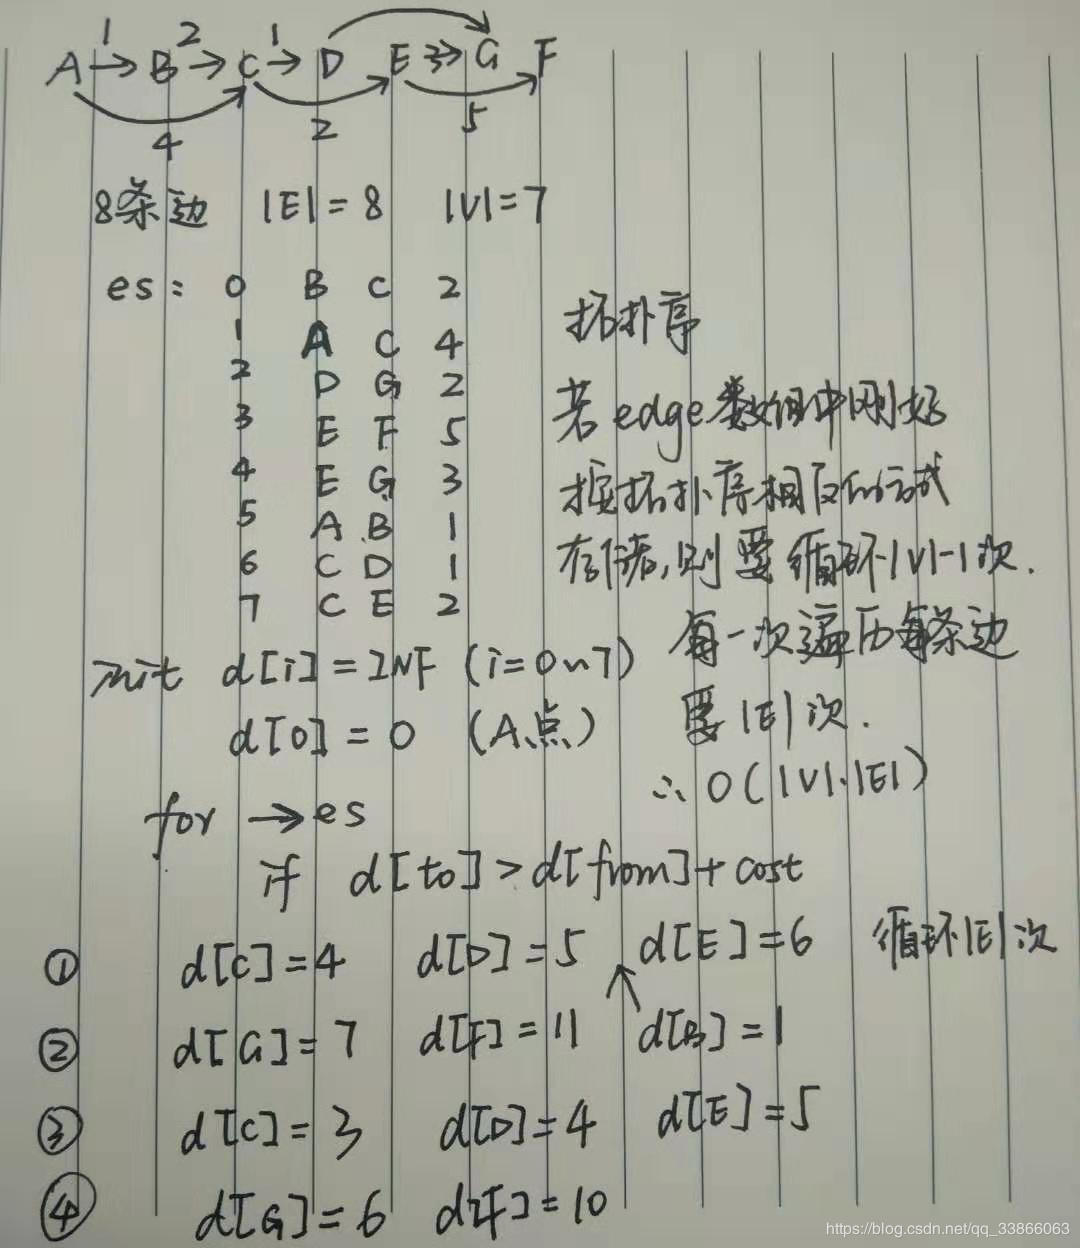 1 2 1
A → B → C → D E → G F
4 2 3 5
8条边 |E|=8 |V|=7
es: 0 B C 2
1 A C 4
2 D G 2
3 E F 5
4 E G 3
5 A B 1
6 C D 1
7 C E 2
拓扑序
若edge数组中刚好
按拓扑序相反的方式
存储,则要循环|V|-1次.
每一次遍历每条边
要|E|次.
∴ O(|V|·|E|)
init d[i]=INF (i=0~7)
d[0]=0 (A点)
for → es
if d[to]>d[from]+cost
① d[C]=4 d[D]=5 d[E]=6 循环|E|次
② d[G]=7 d[F]=11 d[B]=1
③ d[C]=3 d[D]=4 d[E]=5
④ d[G]=6 d[F]=10
https://blog.csdn.net/qq_33866063